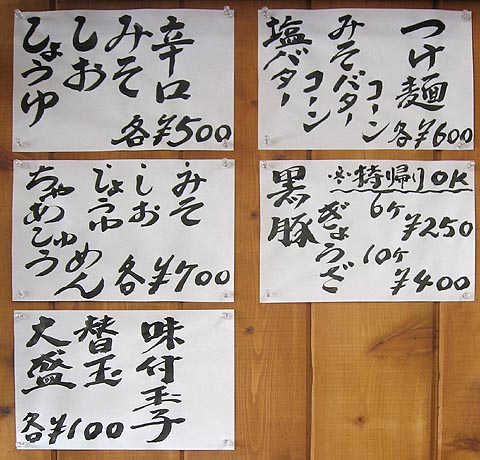 辛口
みそ
しお
しょうゆ
各¥500
みそ
しお
しょうゆ
ちゃあしゅうめん
各¥700
味付玉子
替玉
大盛
各¥100
つけ麺
みそバターコーン
塩バターコーン
各¥600
黒豚ぎょうざ
※持帰りOK
6ケ ¥250
10ケ ¥400